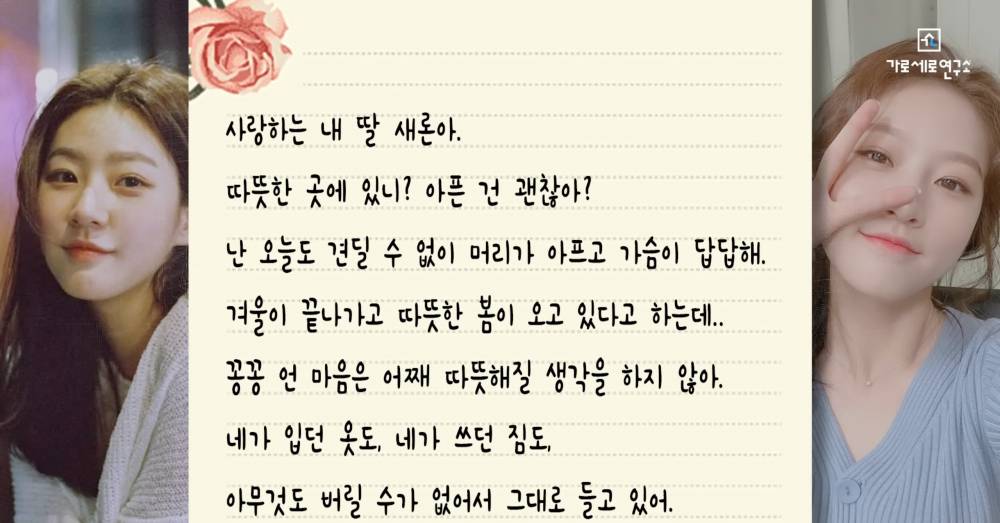 가로세로연구소
사랑하는 내 딸 새론아.
따뜻한 곳에 있니? 아픈 건 괜찮아?
난 오늘도 견딜 수 없이 머리가 아프고 가슴이 답답해.
겨울이 끝나가고 따뜻한 봄이 오고 있다고 하는데..
꽁꽁 언 마음은 어째 따뜻해질 생각을 하지 않아.
네가 입던 옷도, 네가 쓰던 짐도,
아무것도 버릴 수가 없어서 그대로 들고 있어.